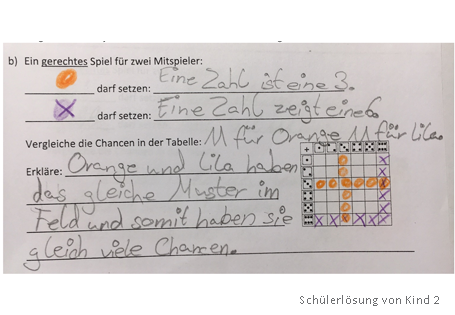 b) Ein gerechtes Spiel für zwei Mitspieler:
darf setzen: Eine Zahl ist eine 3.
darf setzen: Eine Zahl zeigt eine 6.
Vergleiche die Chancen in der Tabelle: 11 für Orange 11 für lila.
Erkläre: Orange und Lila haben
das gleiche Muster im
Feld und somit haben sie
gleich viele Chancen.
Schülerlösung von Kind 2